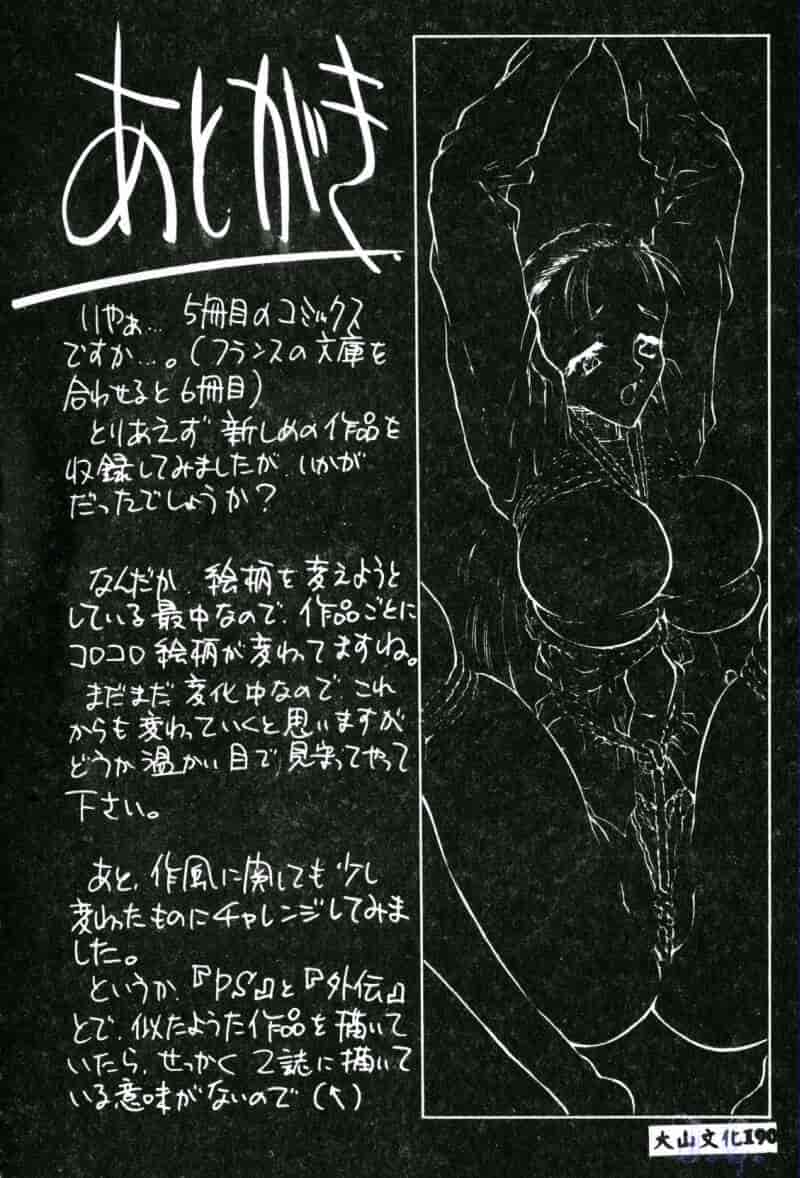 あとがき
いやぁ… 5冊目のコミックス
ですか…。(フランスの文庫を
合わせると6冊目)
とりあえず新しめの作品を
収録してみましたが、いかが
だったでしょうか?
なんだか、絵柄を変えようと
している最中なので、作品ごとに
コロコロ絵柄が変わってますね。
まだまだ変化中なので、これ
からも変わっていくと思いますが
どうか温かい目で、見守ってやって
下さい。
あと、作風に関しても少し
変わったものにチャレンジしてみま
した。
というか、『PS』と『外伝』
とで、似たような作品を描いて
いたら、せっかく2誌に描いて
いる意味がないので(↖)
大山文化190